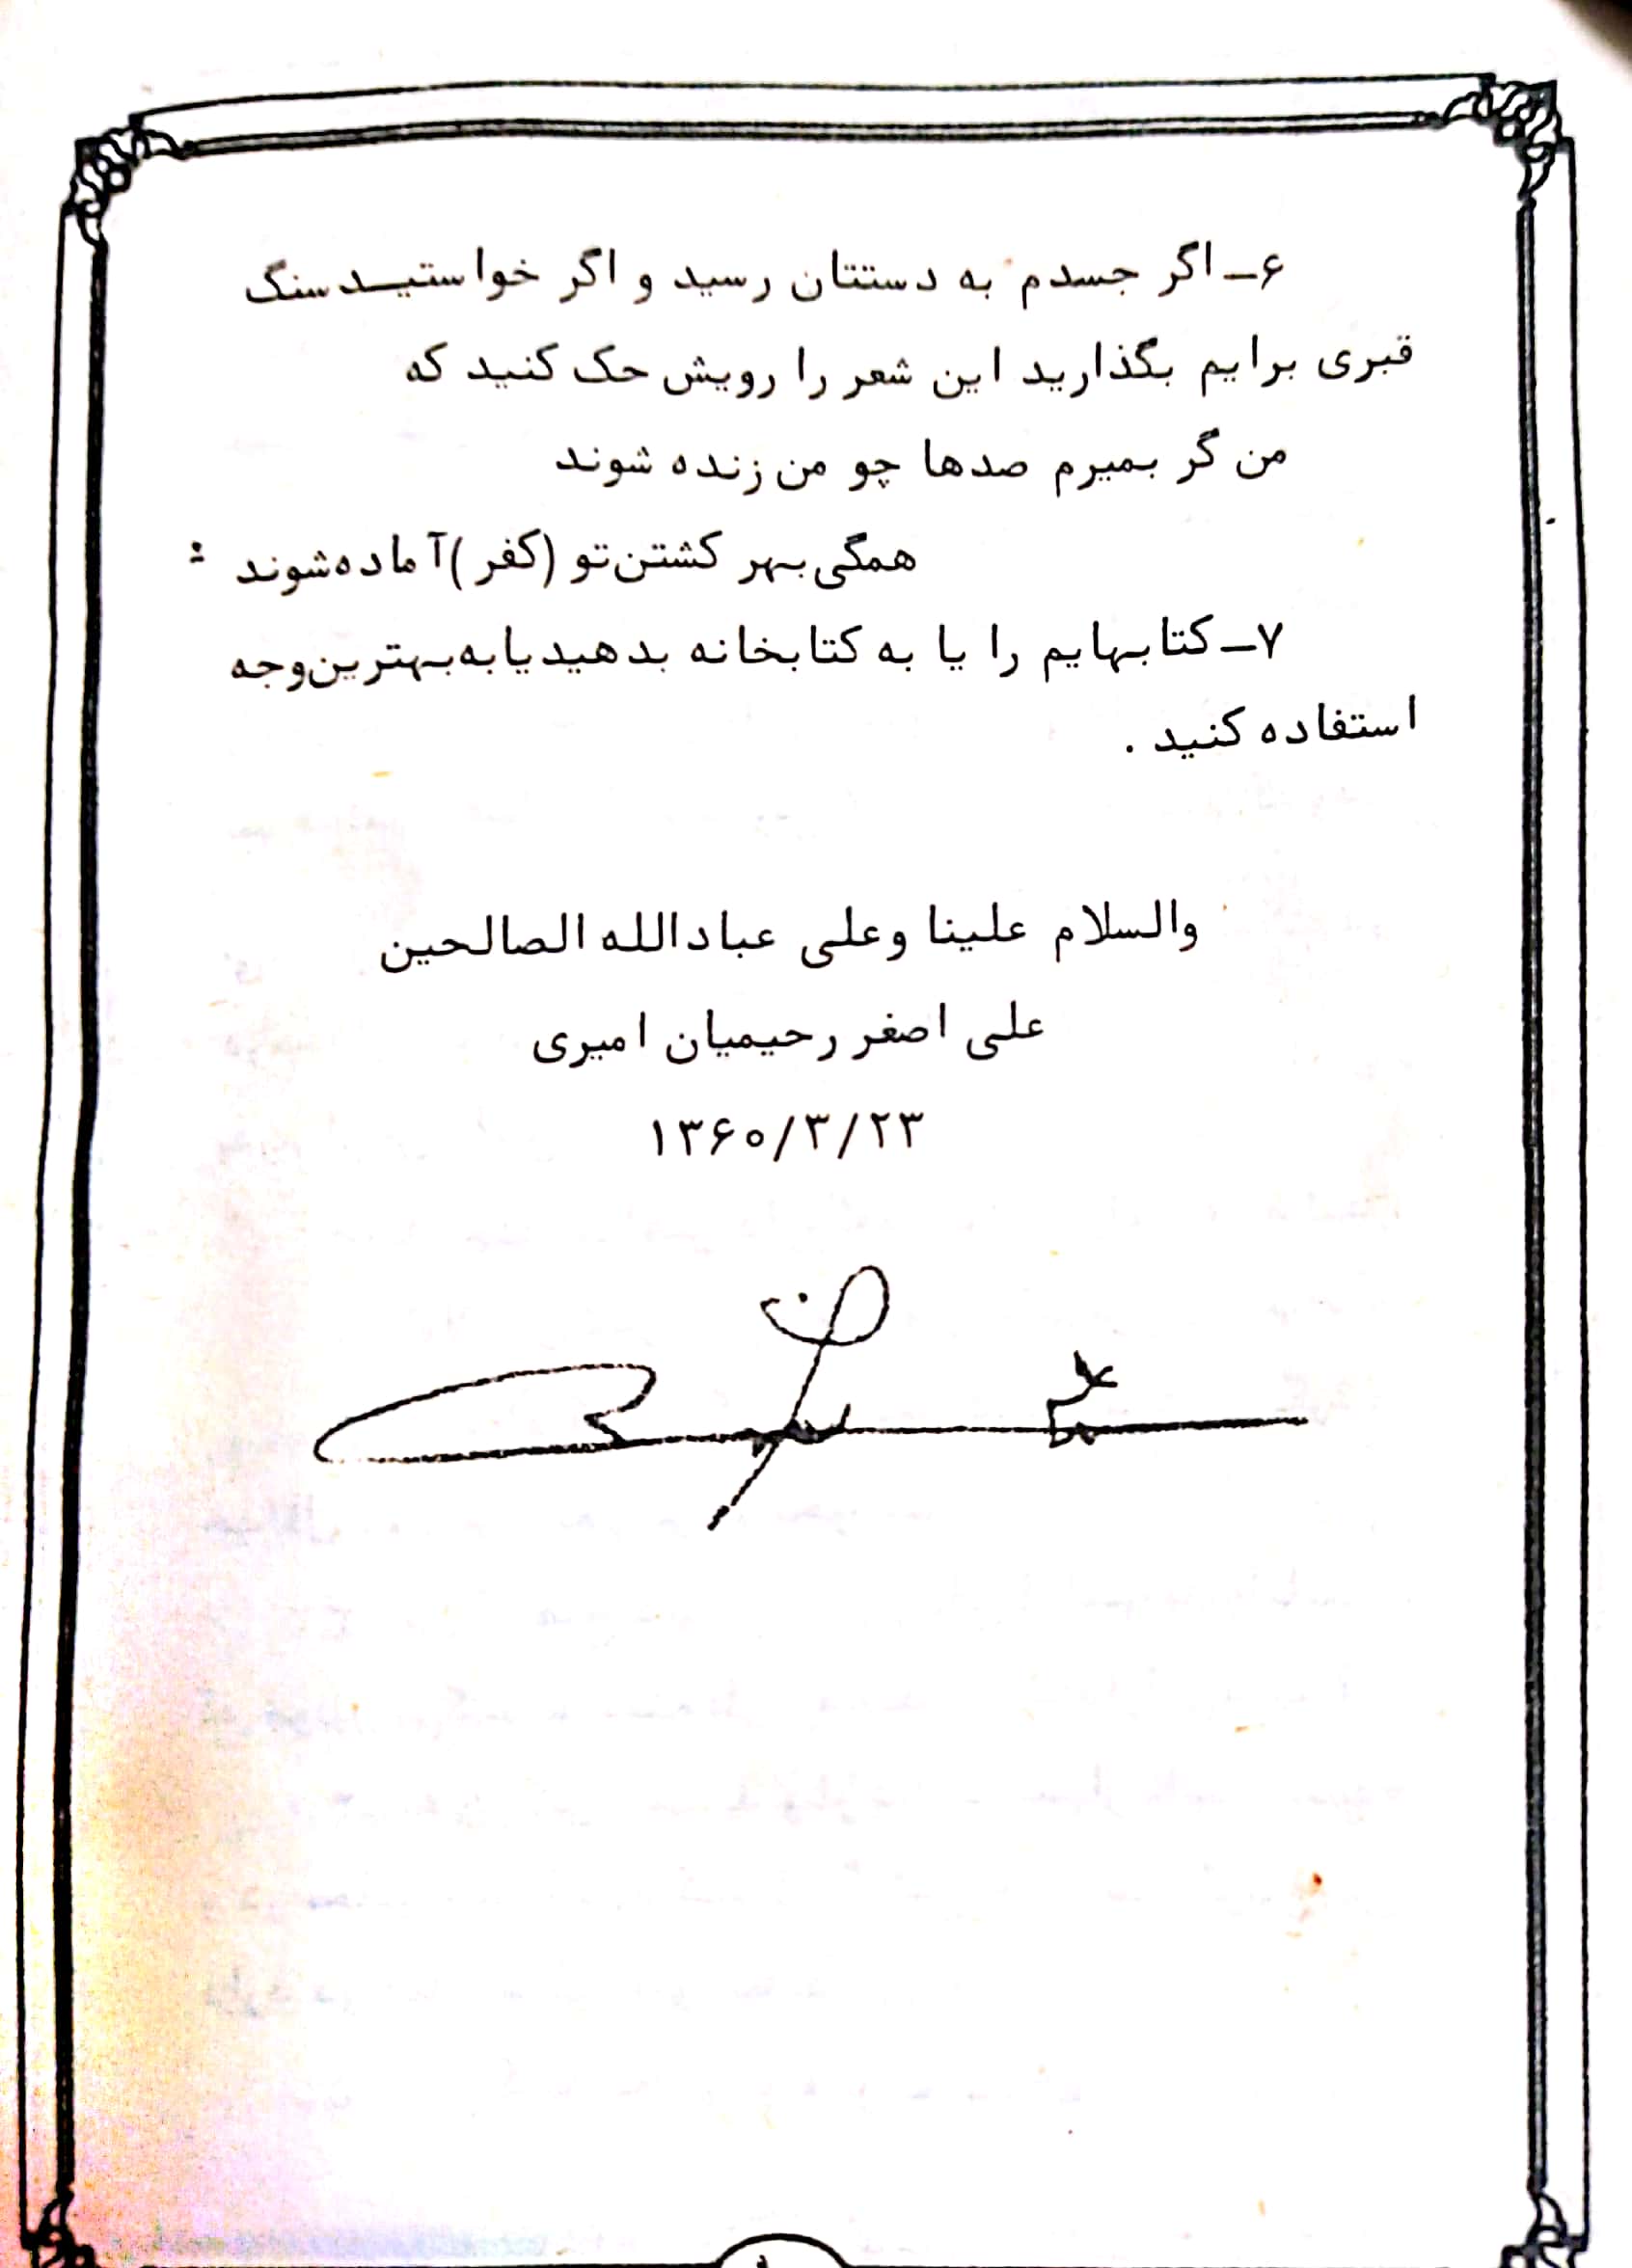 ۶ـ اگر جسدم به دستتان رسید و اگر خواستید سنگ
قبری برایم بگذارید این شعر را رویش حک کنید که
من گر بمیرم صدها چو من زنده شوند
همگی بهر کشتن تو (کفر) آماده شوند :
۷ـ کتابهایم را یا به کتابخانه بدهید یا به بهترین وجه
استفاده کنید .
والسلام علینا وعلی عبادالله الصالحین
علی اصغر رحیمیان امیری
۱۳۶۰/۳/۲۳